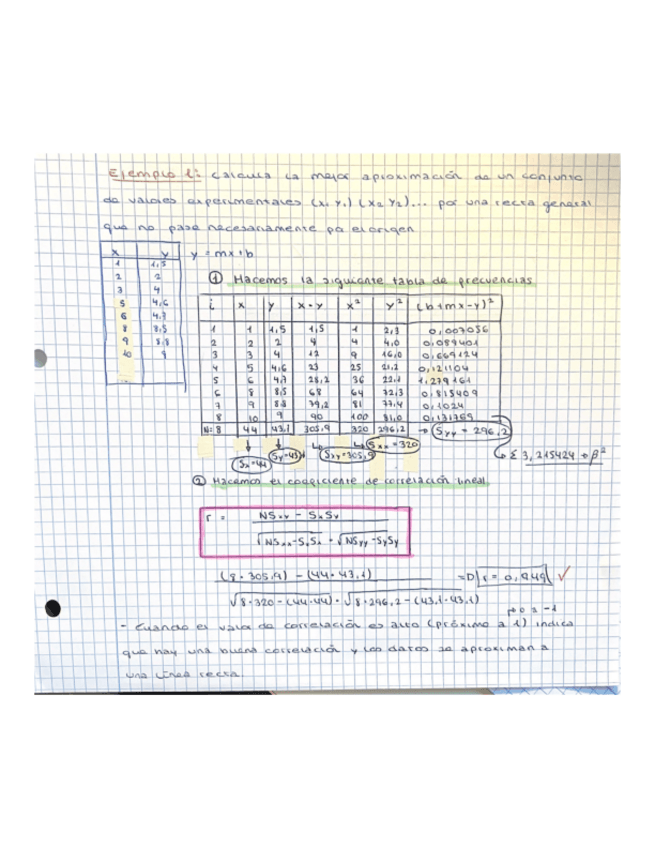 Ejemplo 1: Calcula la mejor aproximación de un conjunto
de valores experimentales (x, y,) (x2 y2)... por una recta general
que no pase necesariamente por el origen
y = mx+b
x y
1 1,5
2 2
3 4
5 4,6
6 4,7
8 8,5
9 8,8
10 9
① Hacemos la siguiente tabla de frecuencias
i x y x·y x² y² (b+mx-y)²
1 1 1,5 1,5 1 2,3 0,007056
2 2 2 4 4 4,0 0,089401
3 3 4 12 9 16,0 0,669124
4 5 4,6 23 25 21,2 0,121104
5 6 4,7 28,2 36 22,1 1,279161
6 8 8,5 68 64 72,3 0,815409
7 9 8,8 79,2 81 77,4 0,1024
8 10 9 90 100 81,0 0,131769
N=8 44 43,1 305,9 320 296,2 → Syy = 296,2
Sx=44 Sy=43,1 Sxy=305,9 Sxx=320 Σ 3,215424 → β²
② Hacemos el coeficiente de correlación lineal
r = NSxy - SxSy
√NSxx-SxSx · √NSyy-SySy
(8·305,9) - (44·43,1) r = 0,949 ✓
√8·320-(44·44) · √8·296,2-(43,1·43,1)
- Cuando el valor de correlación es alto (próximo a 1) indica
que hay una buena correlación y los datos se aproximan a
una línea recta.